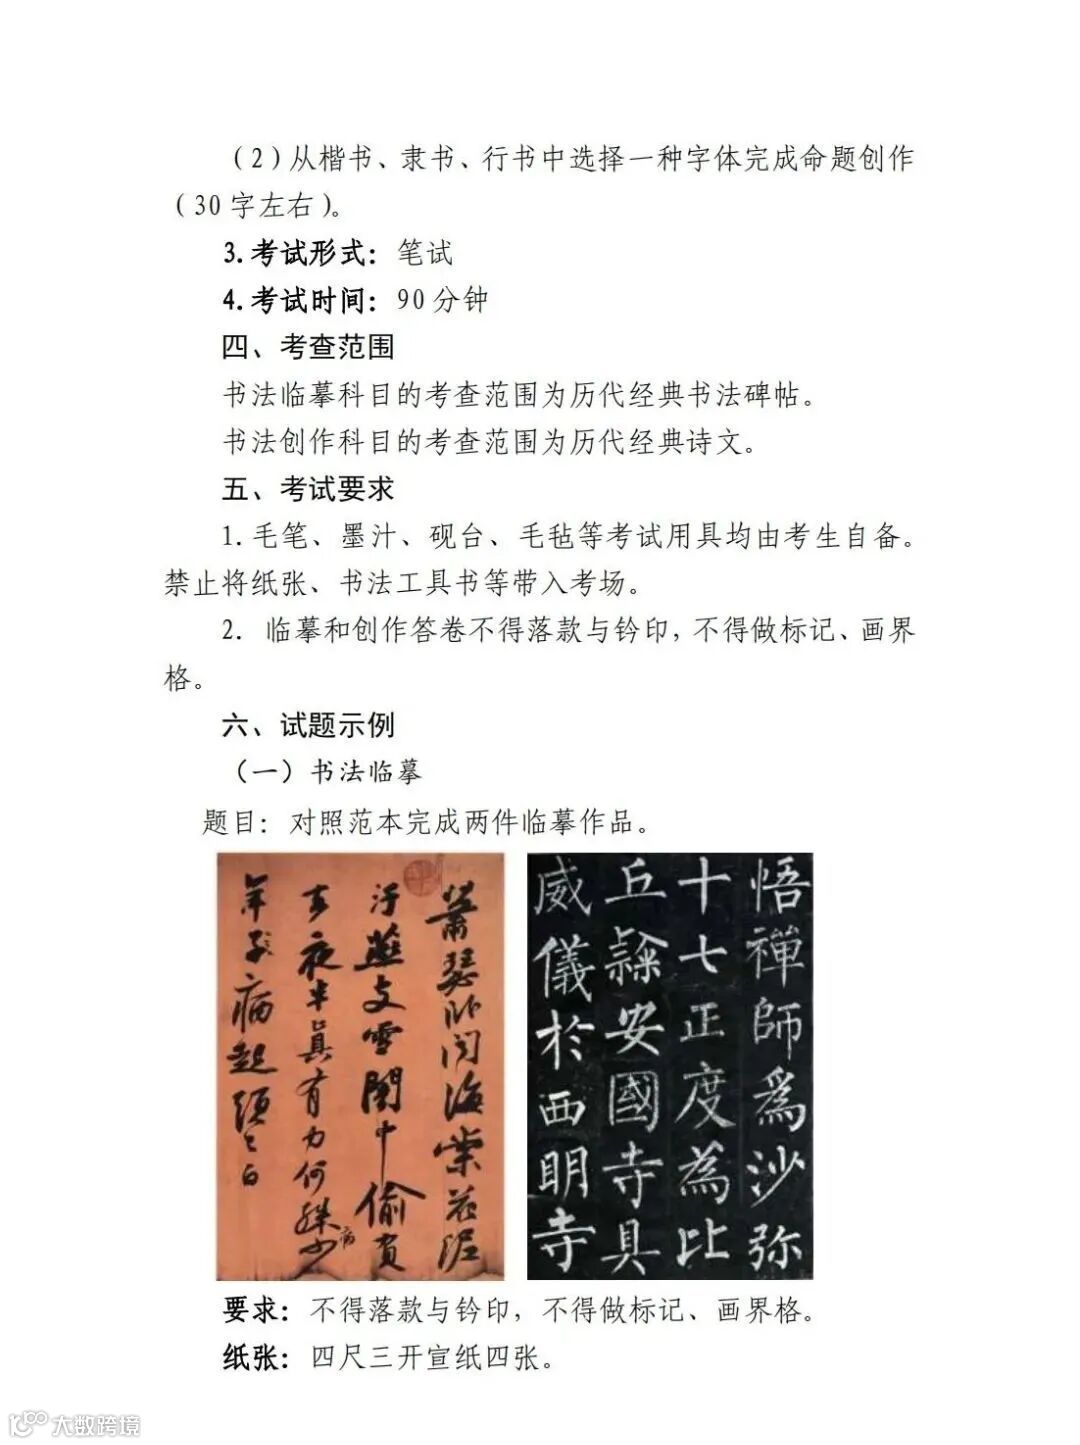 （2）从楷书、隶书、行书中选择一种字体完成命题创作
（30字左右）。
3.考试形式：笔试
4.考试时间：90分钟
四、考查范围
书法临摹科目的考查范围为历代经典书法碑帖。
书法创作科目的考查范围为历代经典诗文。
五、考试要求
1.毛笔、墨汁、砚台、毛毡等考试用具均由考生自备。
禁止将纸张、书法工具书等带入考场。
2. 临摹和创作答卷不得落款与钤印，不得做标记、画界
格。
六、试题示例
（一）书法临摹
题目：对照范本完成两件临摹作品。
萧瑟卧闻海棠花泥
污燕支雪闇中偷负
去夜半真有力何殊少
年子病起须已白
病
悟禅師為沙弥
十七正度為比
丘隷安國寺具
威儀於西明寺
要求：不得落款与钤印，不得做标记、画界格。
纸张：四尺三开宣纸四张。
大数跨境